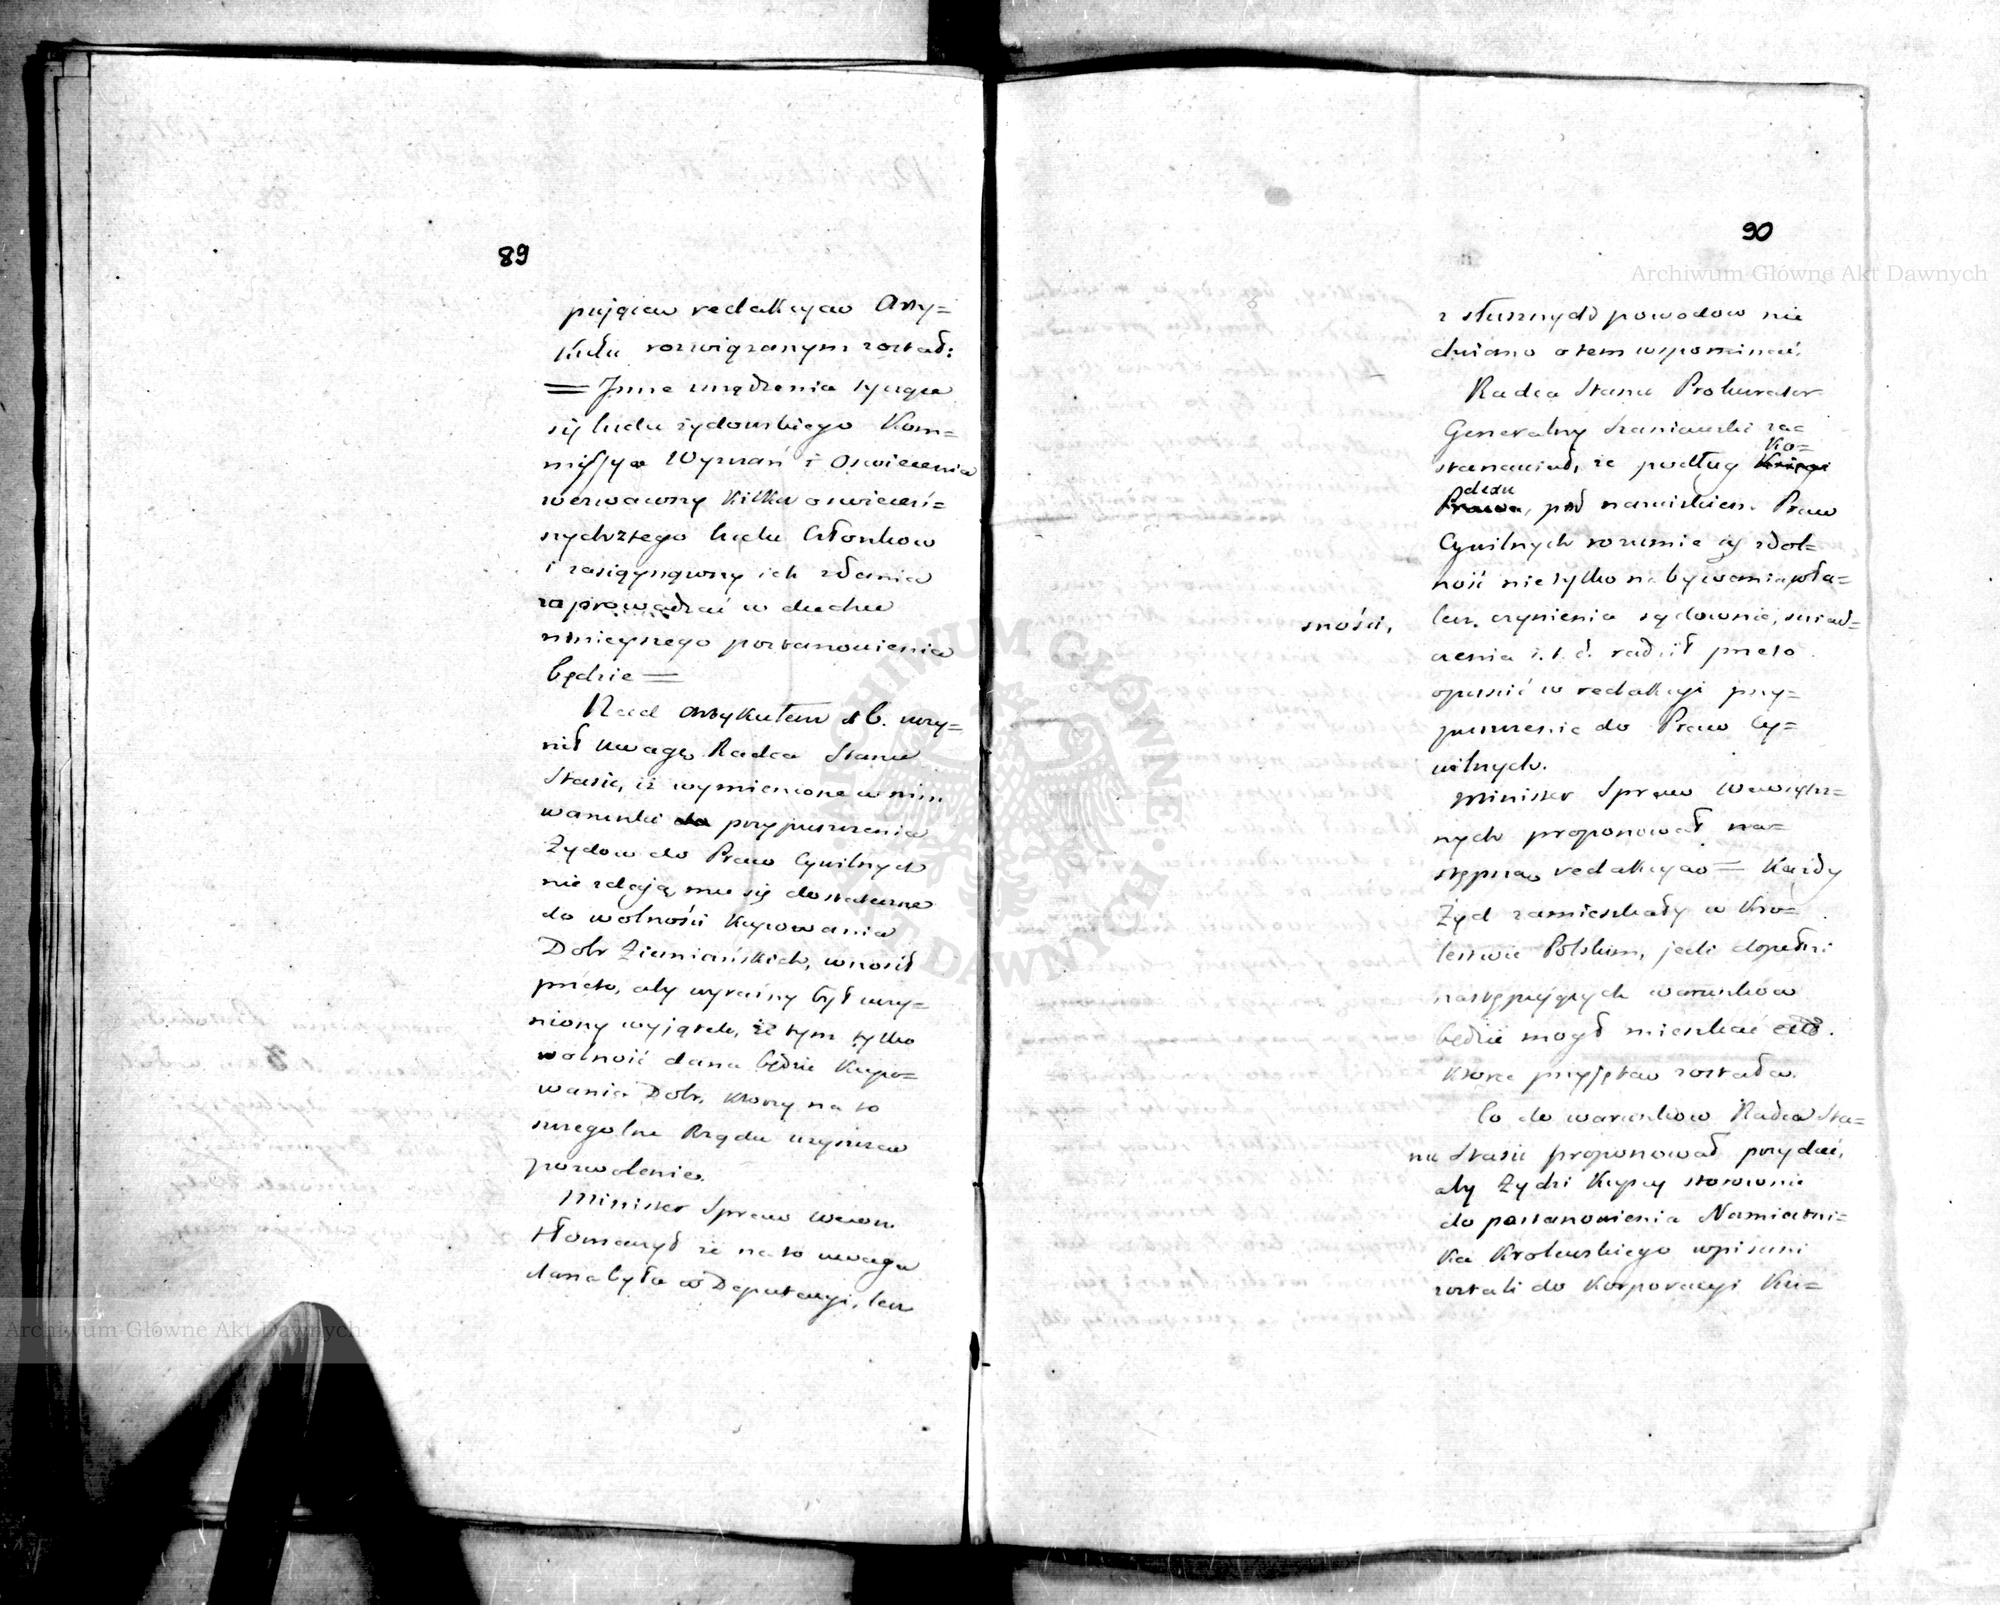 89
pującą redakcyą Arty=
kułu rozwiązanym został:
= Inne urządzenia tyczące
się ludu żydowskiego Kom=
missya Wyznań i Oswiecenia
wezwawszy kilku oswieceń=
szych tego ludu Członkow
i zasiągnąwszy ich zdania
zaprowadzać w duchu
ninieyszego postanowienia
będzie =
Nad Artykułem 16. uczy=
nił uwagę Radca Stanu
Stasic, iż wymienione w nim
warunki do przypuszczenia
Żydow do Praw Cywilnych
nie zdają mu się dostateczne
do wolności kupowania
Dobr Ziemiańskich, wnosił
przeto, aby wyraźny był uczy=
niony wyjątek, iż tym tylko
wolność dana będzie kupo=
wania Dobr, ktorzy na to
szczegolne Rządu uzyszczą
pozwolenie.
Minister Spraw Wewn.
tłomaczył że na to uwaga
dana była w Deputacyi, lecz
90
z słusznych powodow nie
chciano o tem wspominać.
Radca Stanu Prokurator
Generalny Szaniawski za=
stanawiał, że podług Księgi Ko=
Prawa dexu, pod nazwiskiem Praw
Cywilnych rozumie się zdol=
ność nie tylko nabywania wła=
sności,
lecz czynienia sądownie, świad=
czenia i. t. d. radził przeto
opuścić w redakcyi przy=
puszczenie do Praw Cy=
wilnych.
Minister Spraw Wewnętrz=
nych proponował na=
stępną redakcyą = Każdy
Żyd zamieszkały w Kro=
lestwie Polskim, jeśli dopełni
następujących warunkow
będzie mogł mieszkać etc.
ktora przyjętą została.
Co do warunkow Radca Sta=
nu Stasic proponował przydać,
aby Żydzi kupcy stosownie
do postanowienia Namiestni=
ka Krolewskiego wpisani
zostali do Korporacyi Ku=
Archiwum Główne Akt Dawnych
Archiwum Główne Akt Dawnych
ARCHIWUM GŁÓWNE AKT DAWNYCH